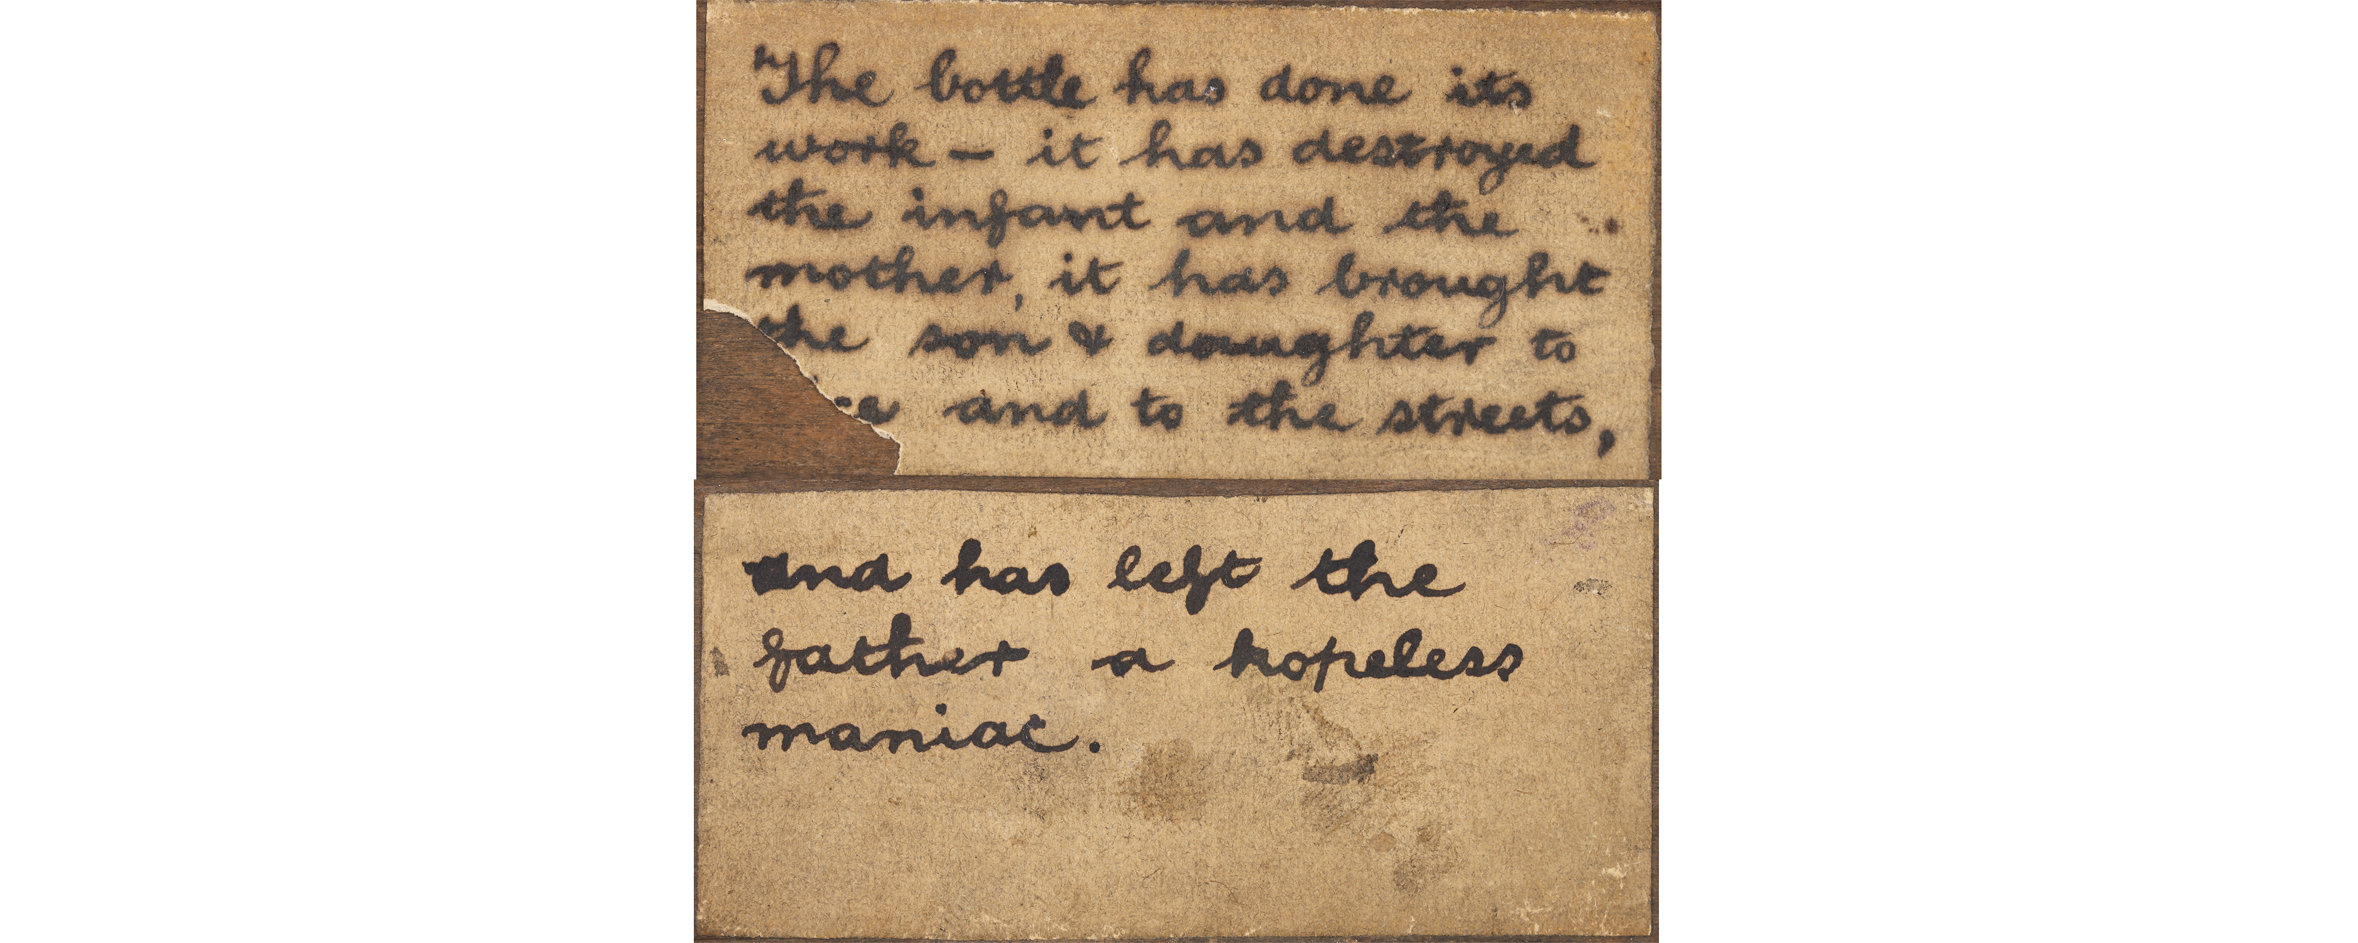 "The bottle has done its
work – it has destroyed
the infant and the
mother, it has brought
the son & daughter to
and to the streets,
and has left the
father a hopeless
maniac.